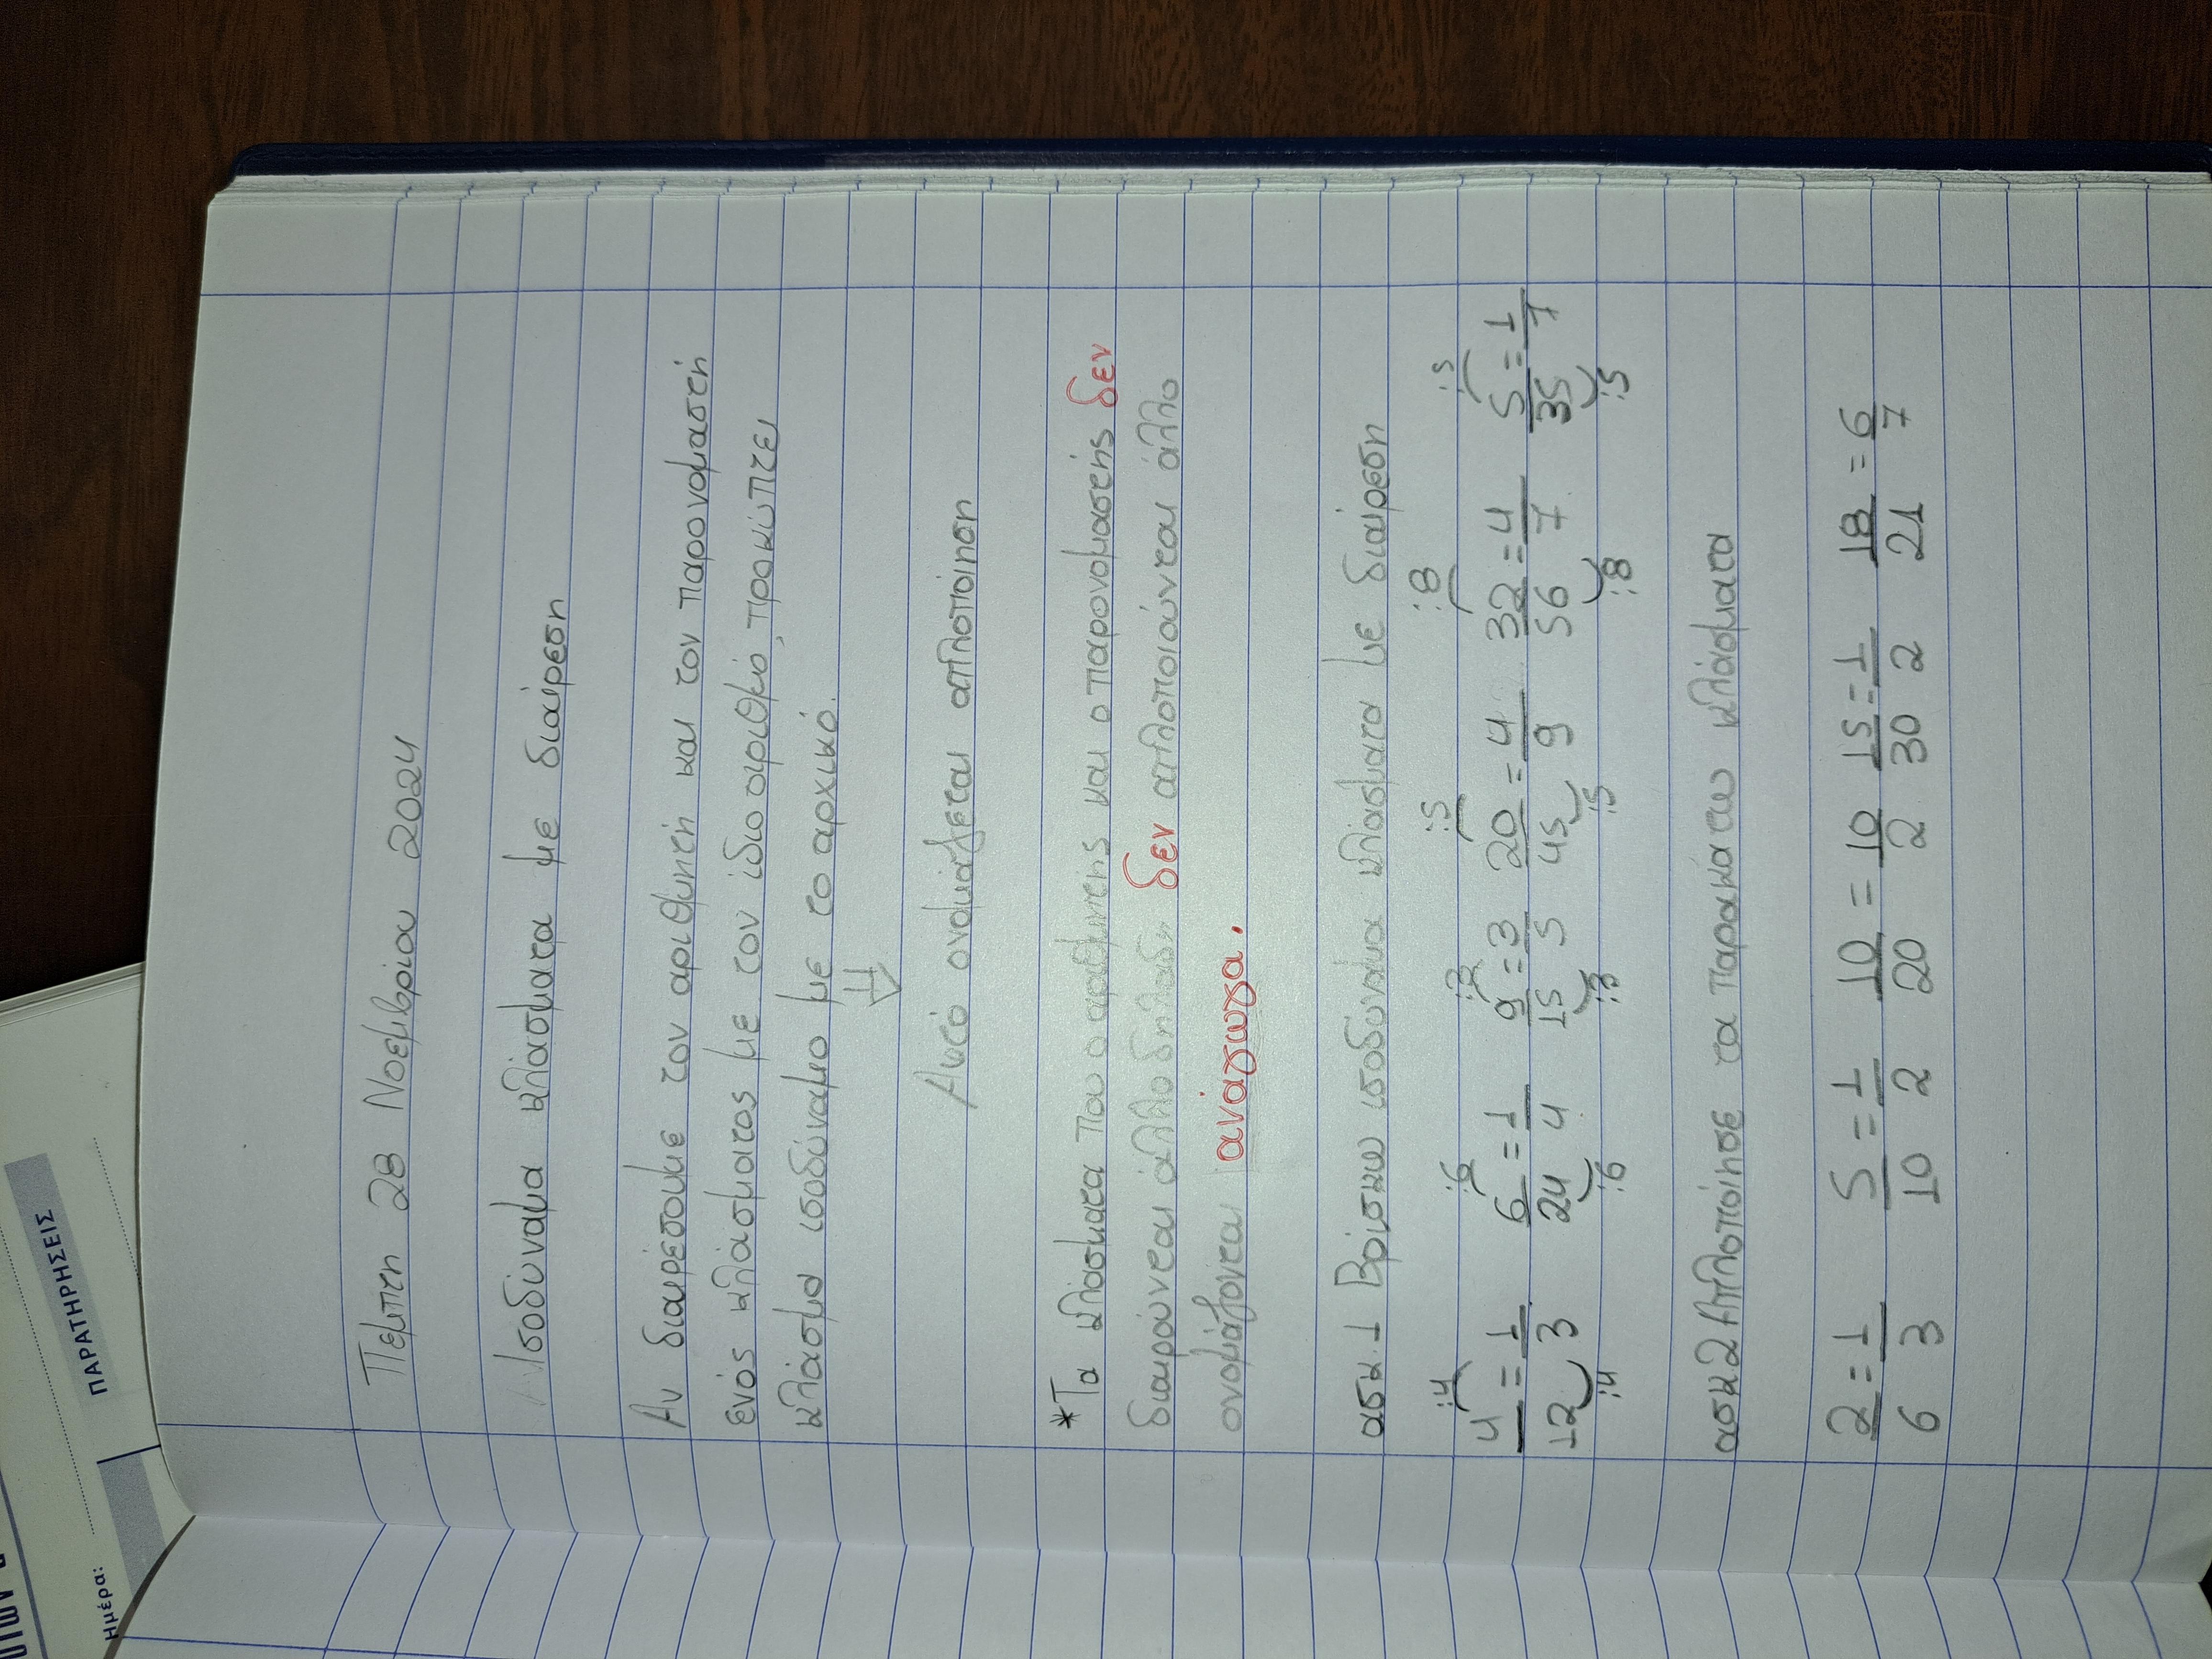 Ημέρα:
ΠΑΡΑΤΗΡΗΣΕΙΣ
Πέμπτη 28 Νοεμβρίου 2024
Ισοδύναμα κλάσματα με διαίρεση
Αν διαιρέσουμε τον αριθμητή και τον παρονομαστή
ενός κλάσματος με τον ίδιο αριθμό, προκύπτει
κλάσμα ισοδύναμο με το αρχικό.
⇓
Αυτό ονομάζεται απλοποίηση
*Τα κλάσματα που ο αριθμητής και ο παρονομαστής δεν
διαιρούνται άλλο δηλαδή δεν απλοποιούνται άλλο
ονομάζονται ανάγωγα.
ασκ. 1 Βρίσκω ισοδύναμα κλάσματα με διαίρεση
:4 :6 :3 :5 :8 :5
4/12 = 1/3 6/24 = 1/4 9/15 = 3/5 20/45 = 4/9 32/56 = 4/7 5/35 = 1/7
:4 :6 :3 :5 :8 :5
ασκ 2 Απλοποίησε τα παρακάτω κλάσματα
2/6 = 1/3 5/10 = 1/2 10/20 = 10/2 15/30 = 1/2 18/21 = 6/7